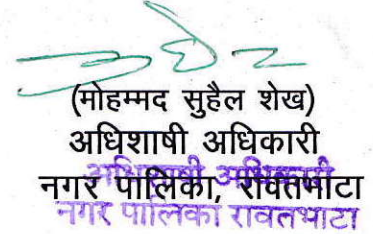 (मोहम्मद सुहैल शेख)
अधिशाषी अधिकारी
अधिशाषी अधिकारी
नगर पालिका, रावतभाटा
नगर पालिका रावतभाटा